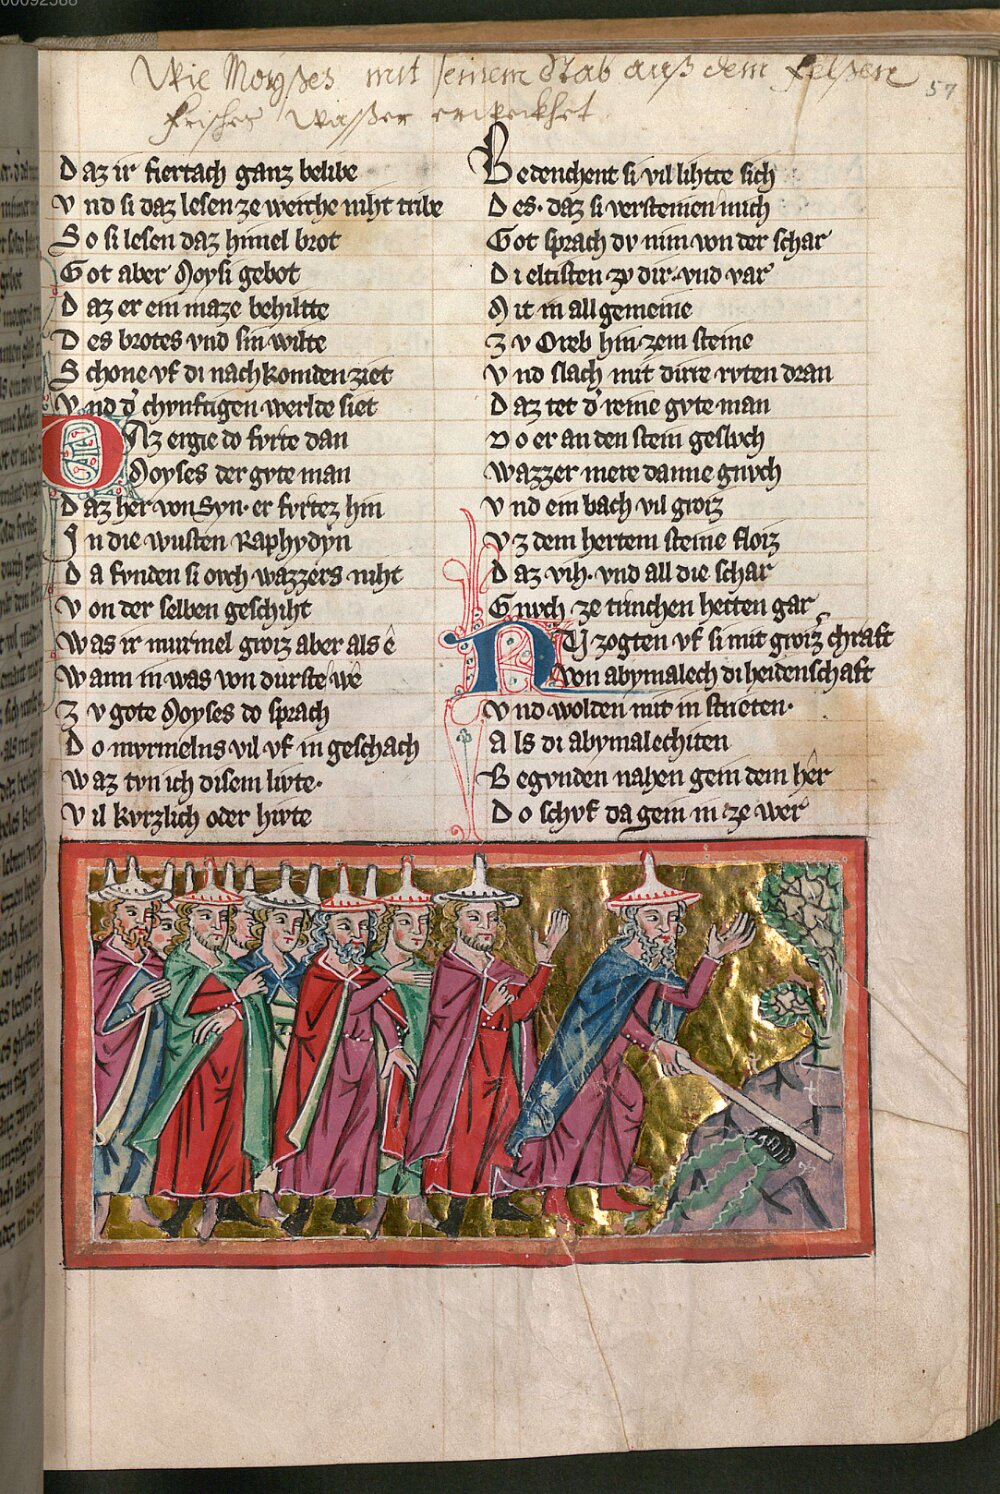 00092588
Wie Moyses mit seinem Stab auß dem Felsen
57
frisches Wasser erweckhet
Daz ir fiertach ganz belibe
Vnd si daz lesen ze werche niht tribe
So si lesen daz himel brot
Got aber Moysi gebot
Daz er ein maze behiltte
Des brotes vnd sin wilte
Schone vf di nachkomden ziet
Vnd d' chvnftigen werlde siet
Daz ergie do fvrte dan
Moyses der gvte man
Daz her von Syn· er fvrtez hin
In die wusten Raphydyn
Da fvnden si ovch wazzers niht
Von der selben geschiht
Was ir murmel groiz aber als ê
Wann in was von durste wê
Zv gote Moyses do sprach
Do myrmelns vil vf in geschach
Waz tvn ich disem livte·
Vil kvrzlich oder hivte
Bedenchent si vil lihtte sich
Des· daz si versteinen mich
Got sprach dv nim von der schar
Di eltisten zv dir· vnd var
Mit in all gemeine
Zv Oreb hin zem steine
Vnd slach mit dirre rvten dran
Daz tet d' reine gvte man
Do er an den stein geslvch
Wazzer mere danne gnvch
Vnd ein bach vil groiz
Vz dem hertem steine floiz
Daz vih· vnd all die schar
Gnvch ze trinchen hetten gar
Nv zogten vf si mit groiz chraft
Von abymalech di heidenschaft
Vnd wolden mit in striten·
Als di abymalechiten
Begvnden nahen gein dem hêr
Do schvf da gein in ze wer